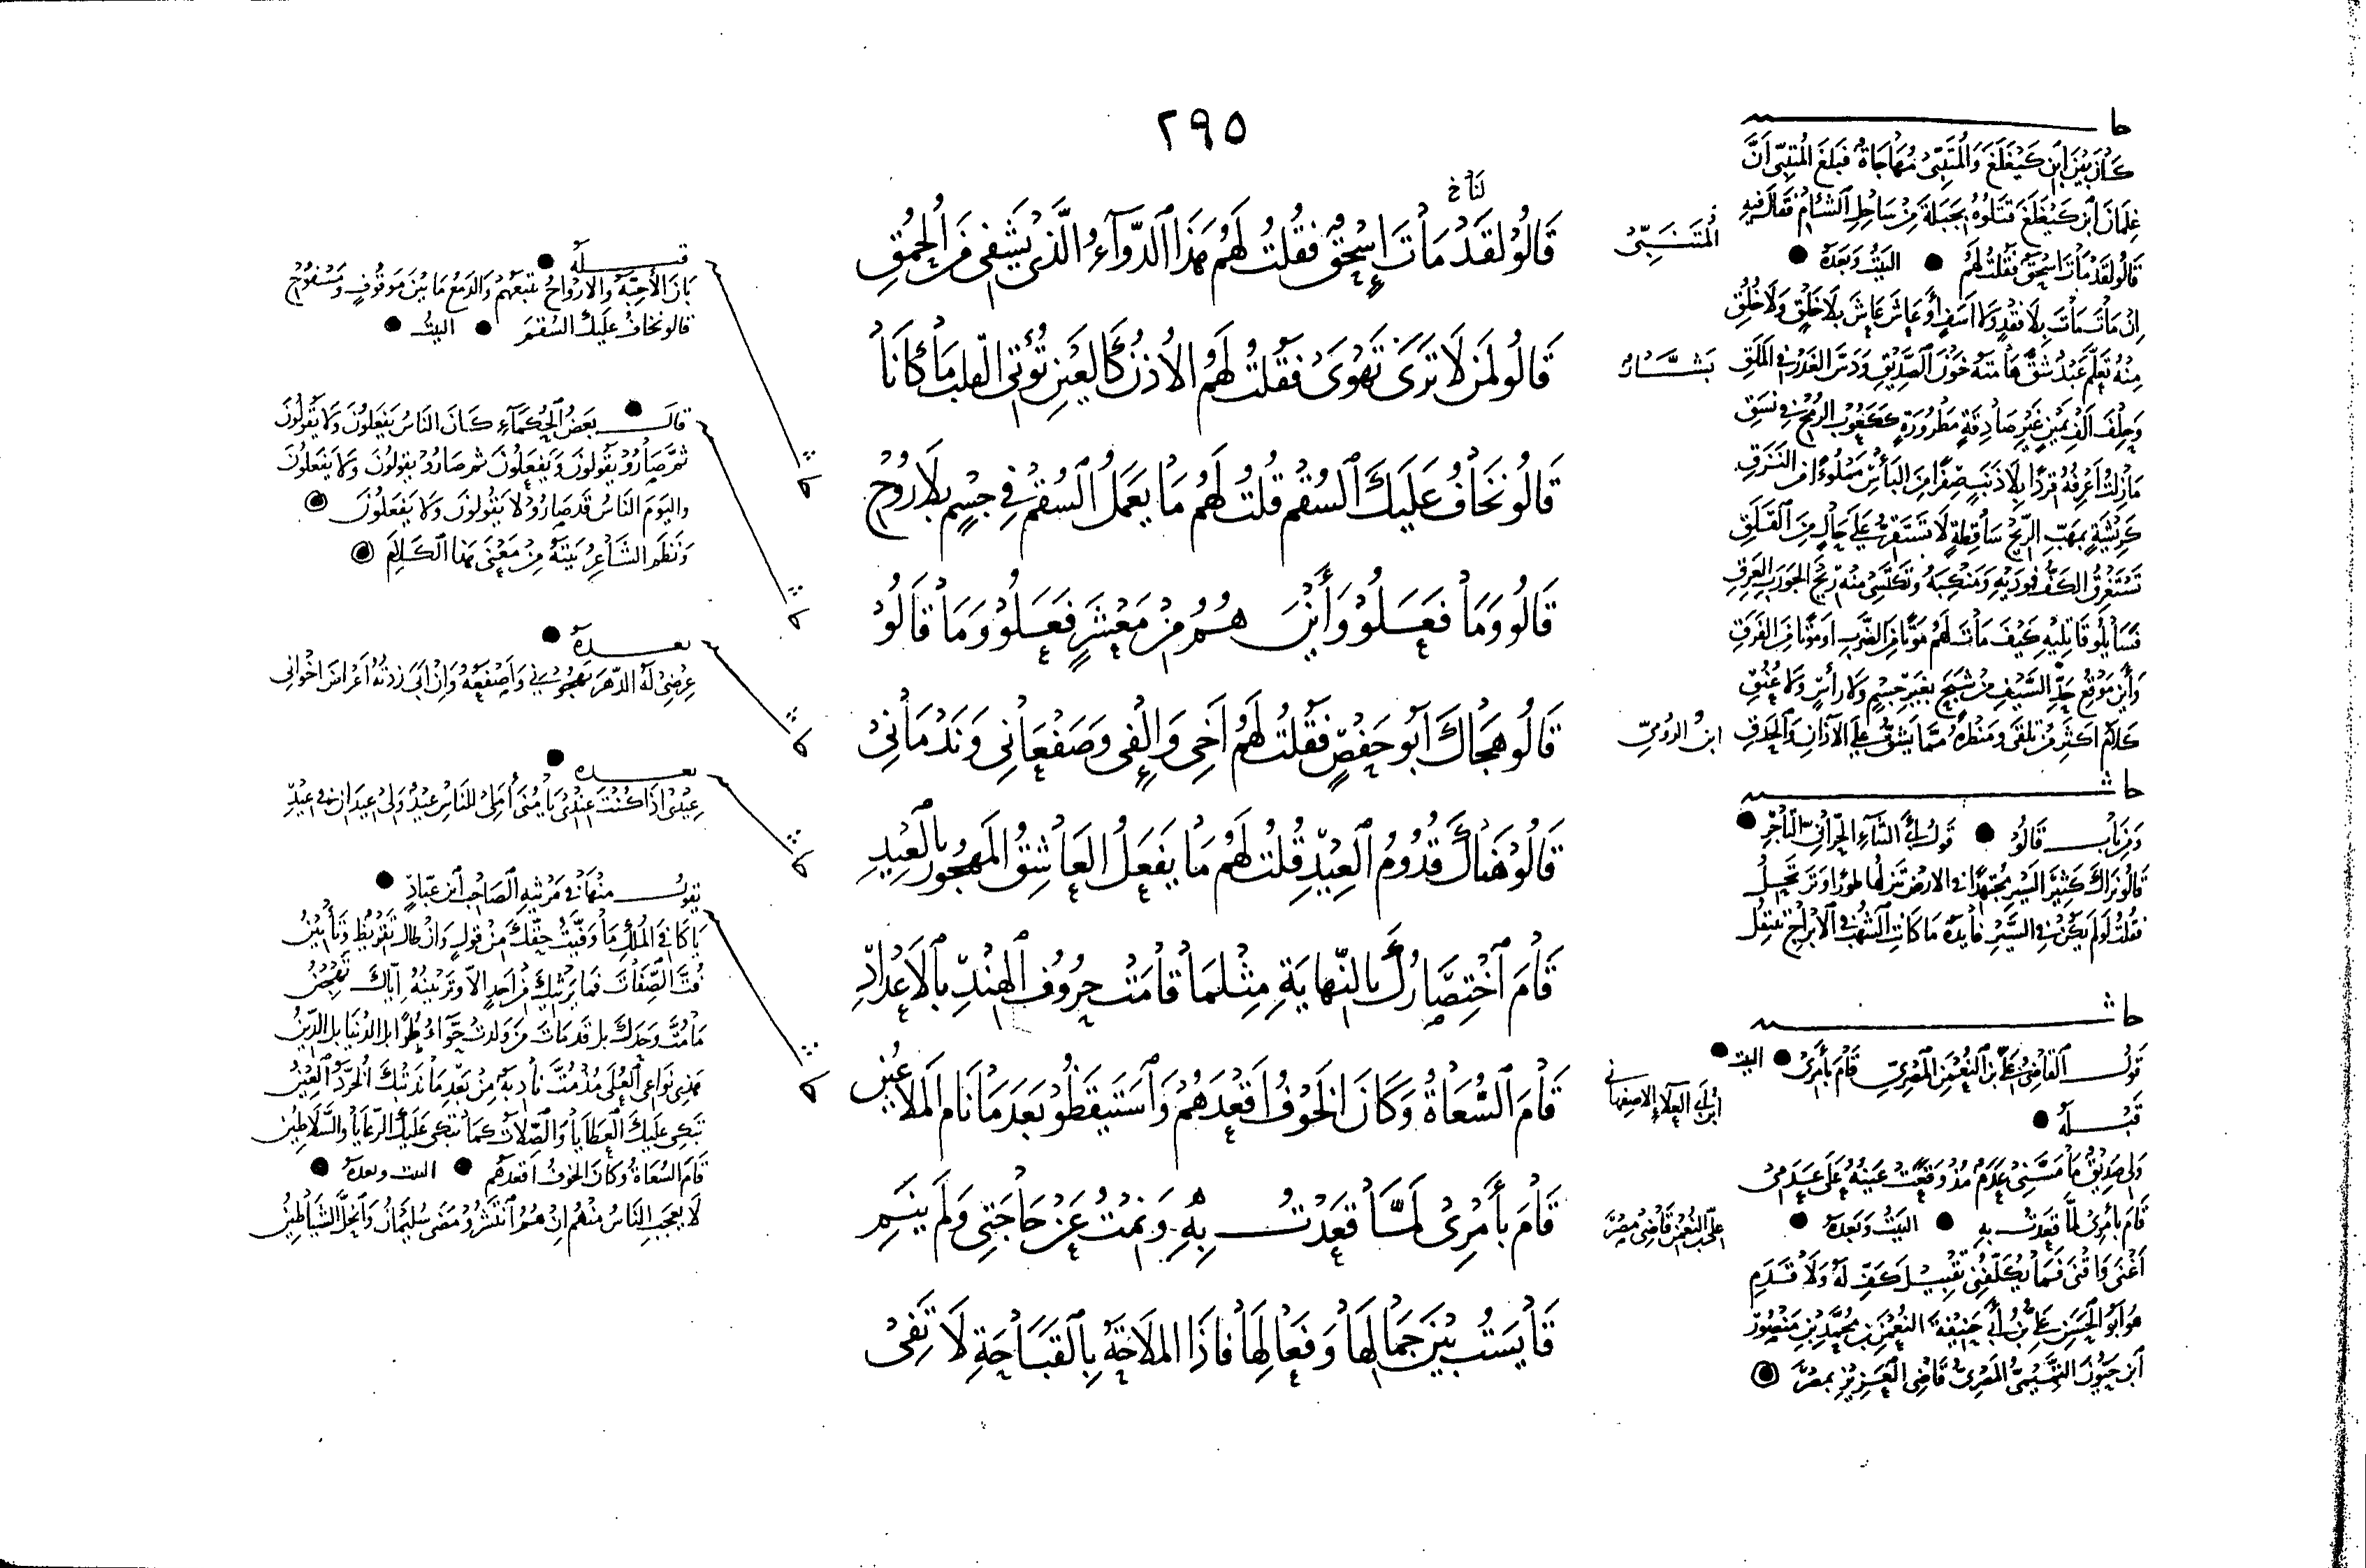 ٢٩٥
لنا خ
قَالُوْ لَقَدْ مَاتَ إِسْحٰقٌ فَقُلْتُ لَهُمْ هَذَا الدَّوَآءُ الَّذِي يَشْفِي مِنَ الْحُمُقِ
قَالُو لِمَنْ لَا تَرَى تَهْوَى فَقُلْتُ لَهُمُ الأُذْنُ كَالْعَيْنِ تُؤْتِي الْقَلْبَ مَا كَانَا
قَالُو نَخَافُ عَلَيْكَ السُّقْمَ قُلْتُ لَهُمْ مَا يَعْمَلُ السُّقْمُ فِي جِسْمٍ بِلَا رُوْحِ
قَالُو وَمَا فَعَلُوْ وَأَيْنَ هُمُ مِنْ مَعْشَرٍ فَعَلُوْ وَمَا قَالُوْ
قَالُو هَجَاكَ أَبُو حَفْصٍ فَقُلْتُ لَهُمُ أَخِي وَإِلْفِي وَصَفْعَانِي وَنَدْمَانِيْ
قَالُوْ هَنَاكَ قُدُومُ الْعِيْدِ قُلْتُ لَهُمْ مَا يَفْعَلُ الْعَاشِقُ الْمَهْجُورُ بِالْعِيْدِ
قَامَ اخْتِصَارُكَ بِالنِّهَايَةِ مِثْلَمَا قَامَتْ حُرُوفُ الْهِنْدِ بِالْأَعْدَادِ
قَامَ السُّعَاةُ وَكَانَ الْخَوْفُ أَقْعَدَهُمْ وَاسْتَيْقَظُوْ بَعْدَ مَا نَامَ الْمَلَاعِيْنُ
قَامَ بِأَمْرِيْ لَمَّا قَعَدْتُ بِهِ وَنِمْتُ عَنْ حَاجَتِي وَلَمْ يَنَمِ
قَايَسْتُ بَيْنَ جَمَالِهَا وَفَعَالِهَا فَإِذَا الْمَلَاحَةُ بِالْقَبَاحَةِ لَا تَفِيْ
الْمُتَنَبِّيْ
بَشَّار
ابن الرُومِيّ
ابن أبي العلاء الاصفهاني
علي بن النعمن قاضي مصر
حا
كَانَ بَيْنَ ابنِ كَيْغَلَغَ وَالْمُتَنَبِّيْ مُهَاجَاةٌ فَبَلَغَ الْمُتَنَبِّي أَنَّ
غِلْمَانَ ابنِ كَيْغَلَغَ قَتَلُوْهُ بِجَبَلَةَ مِنْ سَاحِلِ الشَّامِ فَقَالَ فِيهِ
قَالُو لَقَدْ مَاتَ إِسْحٰقٌ فَقُلْتُ لَهُمْ • الْبَيْتُ وَبَعْدَهُ •
إِنْ مَاتَ مَاتَ بِلَا فَقْدٍ وَلَا أَسَفٍ أَوْ عَاشَ عَاشَ بِلَا خَلْقٍ وَلَا خُلُقِ
مِنْهُ تَعَلَّمَ عَبْدٌ شَقَّ هَامَتَهُ خَوْنَ الصَّدِيقِ وَدَسَّ الْغَدْرِ فِي الْمَلَقِ
وَحَلْفَ أَلْفِ يَمِيْنٍ غَيْرِ صَادِقَةٍ مَطْرُوْدَةٍ كَكُعُوْبِ الرُّمْحِ فِي نَسَقِ
مَازِلْتُ أَعْرِفُهُ قِرْدًا بِلَا ذَنَبٍ صِفْرًا مِنَ الْبَأْسِ مَمْلُوْءًا مِنَ النَّزَقِ
كَرِيْشَةٍ بِمَهَبِّ الرِّيْحِ سَاقِطَةٍ لَا تَسْتَقِرُّ عَلَى حَالٍ مِنَ الْقَلَقِ
تَسْتَغْرِقُ الْكَفُّ فَوْدَيْهِ وَمَنْكِبَهُ وَتَكْتَسِي مِنْهُ رِيْحَ الْجَوْرَبِ الْعَرِقِ
فَسَائِلُو قَاتِلِيْهِ كَيْفَ مَاتَ لَهُمْ مَوْتًا مِنَ الضَّرْبِ أَوْ مَوْتًا مِنَ الْفَرَقِ
وَأَيْنَ مَوْقِعُ حَدِّ السَّيْفِ مِنْ شَبَحٍ بِغَيْرِ جِسْمٍ وَلَا رَأْسٍ وَلَا عُنُقِ
كَلَامُ أَكْثَرِ مَنْ تَلْقَى وَمَنْظَرُهُ مِمَّا يَشُقُّ عَلَى الْآذَانِ وَالْحَدَقِ
حاش
وَمِنْ بَابِ قَالُوْ • قَوْلُ أَبِي الثَّنَاءِ الْحَرَّانِيِّ التَّاجِرِ •
قَالُو نَرَاكَ كَثِيْرَ السَّيْرِ مُجْتَهِدًا فِي الْأَرْضِ تَنْزِلُهَا طَوْرًا وَتَرْتَحِلُ
فَقُلْتُ لَوْ لَمْ يَكُنْ فِي السَّيْرِ فَايِدَةٌ مَا كَانَتِ الشُّهْبُ فِي الْأَبْرَاجِ تَنْتَقِلُ
حاش
قَوْلُ الْقَاضِيْ عَلِيِّ بْنِ النُّعْمٰنِ الْمَصْرِيِّ قَامَ بِأَمْرِيْ • الْبَيْت •
قَبْلَهُ •
وَلِي صَدِيْقٌ مَا مَسَّنِي عَدَمٌ مُذْ وَقَعَتْ عَيْنُهُ عَلَى عَدَمِيْ
قَامَ بِأَمْرِيْ لَمَّا قَعَدْتُ بِهِ • الْبَيْتُ وَبَعْدَهُ •
أَغْنَى وَأَقْنَى فَمَا يُكَلِّفُنِي تَقْبِيْلَ كَفٍّ لَهُ وَلَا قَدَمِ
هُوَ أَبُو الْحَسَنِ عَلِيُّ بْنُ أَبِي حَنِيْفَةَ النُّعْمٰنِ بْنِ مُحَمَّدِ بْنِ مَنْصُوْرِ
ابْنِ حَيُّوْنَ التَّمِيْمِيُّ الْمَصْرِيُّ قَاضِي الْعَزِيْزِ بِمِصْرَ
قبله •
بَانَ الْأَحِبَّةُ وَالْأَرْوَاحُ تَتْبَعُهُمْ وَالدَّمْعُ مَا بَيْنَ مَوْقُوْفٍ وَمَسْفُوْحِ
قَالُو نَخَافُ عَلَيْكَ السُّقْمَ • الْبَيْتُ •
قَالَ بَعْضُ الْحُكَمَآءِ كَانَ النَّاسُ يَفْعَلُوْنَ وَلَا يَقُوْلُوْنَ
ثُمَّ صَارُوْ يَقُولُونَ وَيَفْعَلُونَ ثُمَّ صَارُوْ يَقُولُونَ وَلَا يَفْعَلُونَ
وَالْيَوْمَ النَّاسُ قَدْ صَارُوْ لَا يَقُولُونَ وَلَا يَفْعَلُونَ
وَنَظَمَ الشَّاعِرُ بَيْتَهُ مِنْ مَعْنَى هَذَا الْكَلَامِ
بعده •
عِرْضِيْ لَهُ الدَّهْرَ يَهْجُوْنِي وَأَصْفَعُهُ وَإِنْ أَبَى زِدْتُهُ أَعْرَاضَ اخْوَانِي
بعده •
عِيْدِيْ إِذَا كُنْتَ عِنْدِيْ يَا مُنَى أَمَلِيْ لِلنَّاسِ عِيْدٌ وَلِيْ عِيْدَانِ فِي الْعِيْدِ
يَقُولُ مِنْهَا فِي مَرْثِيَةِ الصَّاحِبِ ابْنِ عَبَّادٍ •
يَا كَافِيَ الْمُلْكِ مَا وَفَّيْتُ حَقَّكَ مِنْ قَوْلٍ وَإِنْ طَالَ تَقْرِيْظٌ وَتَأْبِيْنُ
فُتَّ الصِّفَاتِ فَمَا يَرْثِيْكَ مِنْ أَحَدٍ إِلَّا وَتَزْيِيْنُهُ إِيَّاكَ تَهْجِيْنُ
مَا مُتَّ وَحْدَكَ بَلْ قَدْ مَاتَ مَنْ وَلَدَتْ حَوَّاءُ طُرًّا بَلِ الدُّنْيَا بَلِ الدِّيْنُ
هَذِي نَوَاعِي الْعُلَى مُذْ مُتَّ نَادِبَةٌ مِنْ بَعْدِ مَا نَدَبَتْكَ الْخُرَّدُ الْعِيْنُ
تَبْكِي عَلَيْكَ الْعَطَايَا وَالصِّلَاتُ كَمَا تَبْكِي عَلَيْكَ الرَّعَايَا وَالسَّلَاطِيْنُ
قَامَ السُّعَاةُ وَكَانَ الْخَوْفُ أَقْعَدَهُمْ • البيت وبعده •
لَا يَعْجَبِ النَّاسُ مِنْهُمُ إِنْ هُمُ انْتَشَرُوْ مَضَى سُلَيْمَانُ وَانْحَلَّ الشَّيَاطِيْنُ